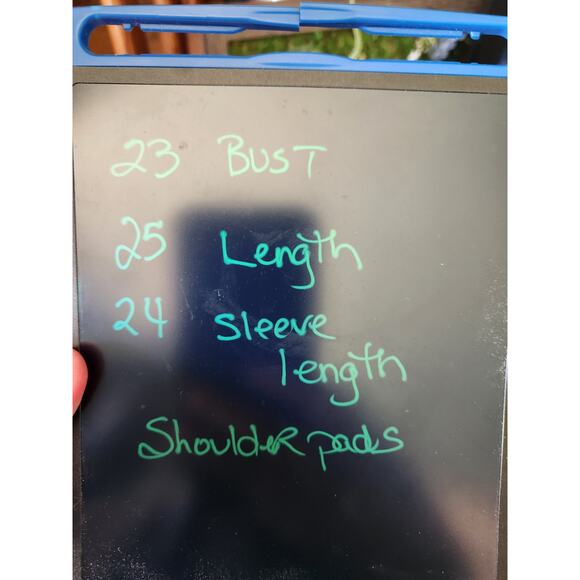 23 BUST
25 Length
24 Sleeve
length
Shoulder pads